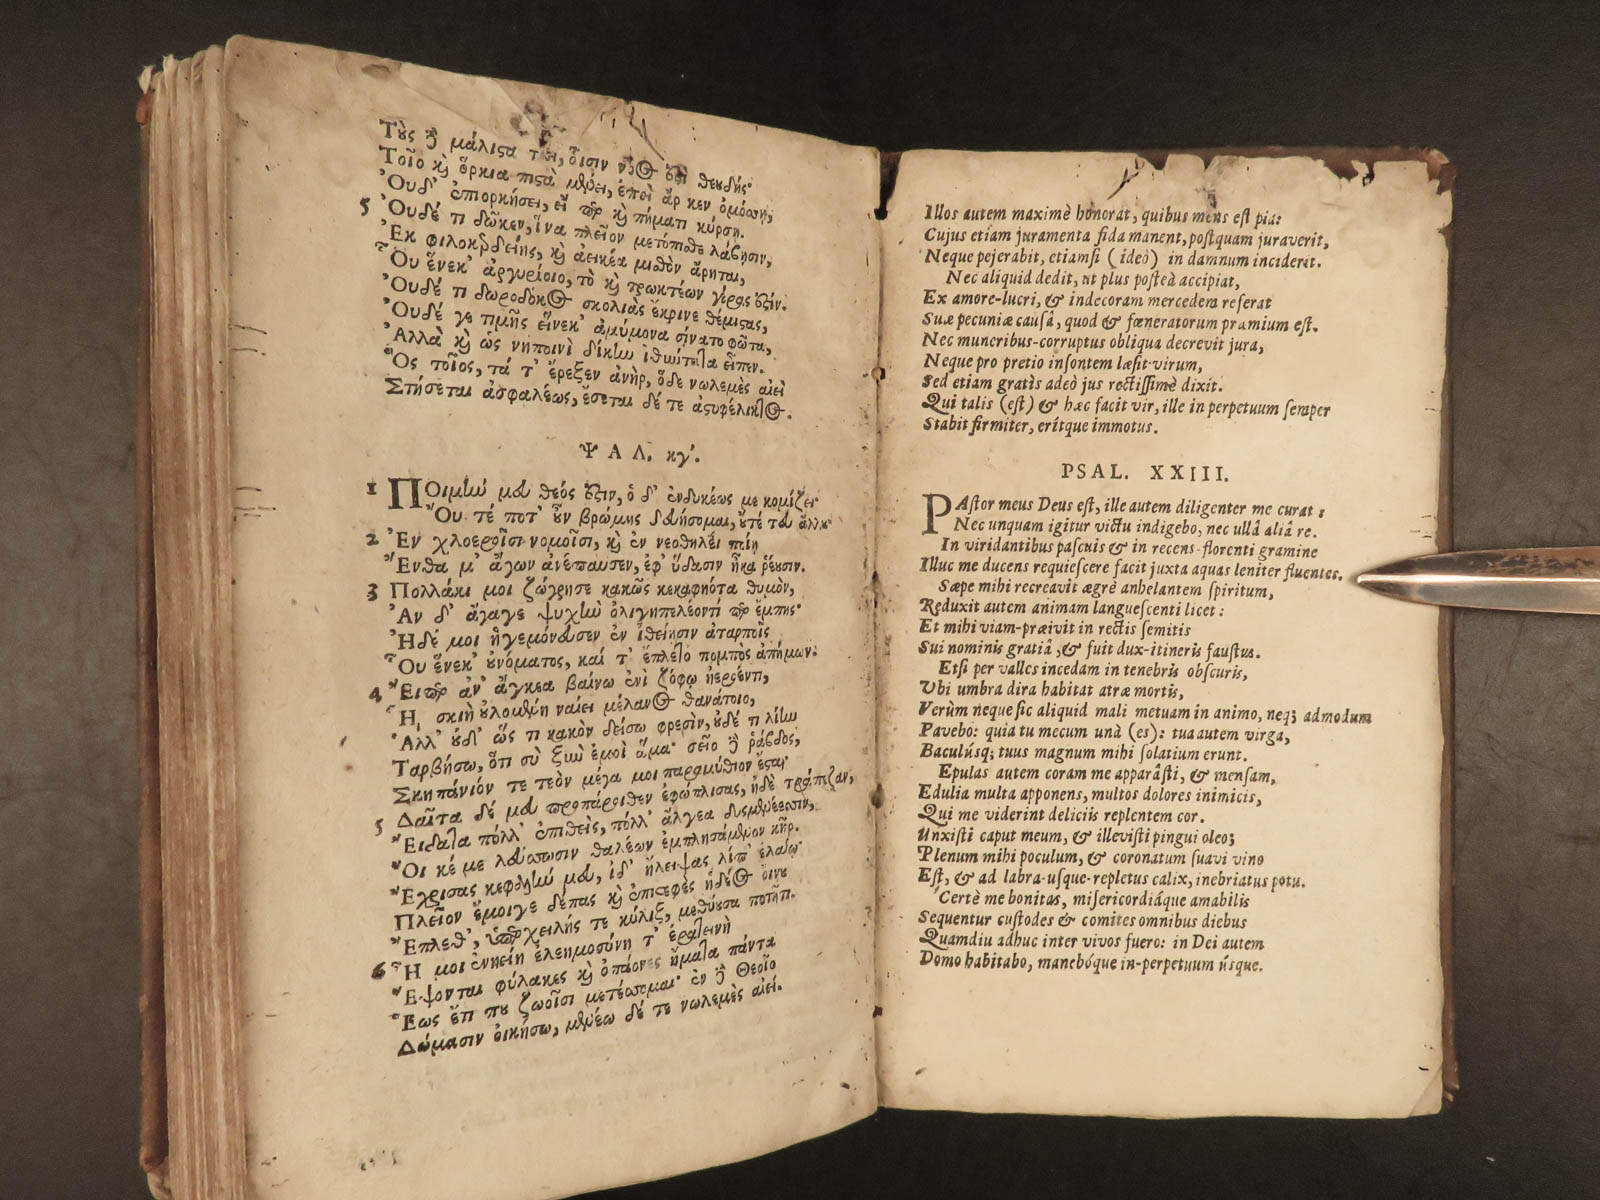 Τοῖο κὴ ὅρκια πιςὰ μένει, ἐπεὶ ἄρ κεν ὀμόσῃ,
Οὐδ' ἐπιορκήσει, εἰ περ κὴ πήματι κύρσῃ.
5 Οὐδέ τι δῶκεν, ἵνα πλεῖον μετόπισθε λάβησιν,
Ἐκ φιλοκερδείης, κὴ ἀεικέα μισθὸν ἄρηται,
Οὗ ἕνεκ' ἀργυρίοιο, τὸ κὴ τρωκτέων γέρας ὅζιν.
Οὐδέ τι δωροδόκος σκολιὰς ἔκρινε θέμιςας,
Οὐδέ γε τιμῆς εἵνεκ' ἀμύμονα σίνατο φῶτα,
Ἀλλὰ κὴ ὡς νηποινὶ δίκην ἰθύντατα εἶπεν.
Ὃς τοῖος, τά τ' ἔρεξεν ἀνὴρ, ὅδε νωλεμὲς αἰεὶ
Στήσεται ἀσφαλέως, ἔσεται δέ τε ἀςυφέλικτος.
ΨΑΛ. κγ'.
1 ΠΟιμὴν μου θεός ἐςιν, ὁ δ' ἐνδυκέως με κομίζει·
Οὔ τέ ποτ' οὖν βρώμης δευήσομαι, οὔτέ του ἄλλου·
2 Ἐν χλοεροῖσι νομοῖσι, κὴ ἐν νεοθηλέϊ ποίῃ
Ἔνθα μ' ἄγων ἀνέπαυσεν, ἐφ' ὕδασιν ἦκα ῥέουσιν.
3 Πολλάκι μοι ζώγρησε κακῶς κεκαφηότα θυμὸν,
Ἂν δ' ἄγαγε ψυχὴν ὀλιγηπελέοντί περ ἔμπης·
Ἠδέ μοι ἡγεμόνευσεν ἐν ἰθείησιν ἀταρποῖς
Οὗ ἕνεκ' οὐνόματος, καί τ' ἔπλετο πομπὸς ἀπήμων.
4 Εἴπερ ἀν' ἄγκεα βαίνω ἐνὶ ζόφῳ ἠερόεντι,
Ἧι σκιὴ οὐλομένη ναίει μέλανος θανάτοιο,
Ἀλλ' οὐδ' ὥς τι κακὸν δείσω φρεσὶν, οὐδέ τι λίην
Ταρβήσω, ὅτι σὺ ξυὺ ἐμοὶ ἅμα· σεῖο δὲ ῥάβδος,
Σκηπάνιόν τε τεὸν μέγα μοι παραμύθιον ἔςαι·
5 Δαῖτα δέ μου προπάροιθεν ἐφώπλισας, ἠδὲ τράπεζαν,
Εἴδατα πόλλ' ἐπιθεὶς, πόλλ' ἄλγεα δυσμενέεσσιν,
Οἵ κέ με λεύσσωσιν θαλέων ἐμπλησάμενον κῆρ.
Ἔχρισας κεφαλὴν μου, ἰδ' ἤλειψας λίπ' ἐλαίῳ·
Πλεῖον ἔμοιγε δέπας κὴ ἐπιςεφὲς ἡδέος οἴνου
Ἔπλεθ', ὑπερχειλής τε κύλιξ, μεθύουσα ποτῆτι.
6 Ἦ μοι ἐνηείη ἐλεημοσύνη τ' ἐρατεινὴ
Ἕψονται φύλακες κὴ ὀπάονες ἤματα πάντα
Ἕως ἔτι που ζωοῖσι μετέσσομαι· ἐν δὲ Θεοῖο
Δώμασιν οἰκήσω, μενέω δέ τε νωλεμὲς αἰεί.
Illos autem maximè honorat, quibus mens eſt pia:
Cujus etiam juramenta fida manent, poſtquam juraverit,
Neque pejerabit, etiamſi (ideò) in damnum inciderit.
Nec aliquid dedit, ut plus poſteà accipiat,
Ex amore-lucri, & indecoram mercedem referat
Suæ pecuniæ causâ, quod & fœneratorum præmium eſt.
Nec muneribus-corruptus obliqua decrevit jura,
Neque pro pretio inſontem læſit virum,
Sed etiam gratìs adeò jus rectiſſimè dixit.
Qui talis (eſt) & hæc facit vir, ille in perpetuum ſemper
Stabit firmiter, erítque immotus.
PSAL. XXIII.
PAſtor meus Deus eſt, ille autem diligenter me curat:
Nec unquam igitur victu indigebo, nec ullâ aliâ re.
In viridantibus paſcuis & in recens-florenti gramine
Illuc me ducens requieſcere facit juxta aquas leniter fluentes.
Sæpe mihi recreavit ægrè anhelantem ſpiritum,
Reduxit autem animam langueſcenti licet:
Et mihi viam-præivit in rectis ſemitis
Sui nominis gratiâ, & fuit dux-itineris fauſtus.
Etſi per valles incedam in tenebris obſcuris,
Vbi umbra dira habitat atræ mortis,
Verùm neque ſic aliquid mali metuam in animo, neq; admodum
Pavebo: quia tu mecum unà (es): tua autem virga,
Baculúsq; tuus magnum mihi ſolatium erunt.
Epulas autem coram me apparâſti, & menſam,
Edulia multa apponens, multos dolores inimicis,
Qui me viderint deliciis repletem cor.
Unxiſti caput meum, & illeviſti pingui oleo;
Plenum mihi poculum, & coronatum ſuavi vino
Eſt, & ad labra-uſque-repletus calix, inebriatus potu.
Certè me bonitas, miſericordiáque amabilis
Sequentur cuſtodes & comites omnibus diebus
Quamdiu adhuc inter vivos fuero: in Dei autem
Domo habitabo, manebóque in-perpetuum úſque.